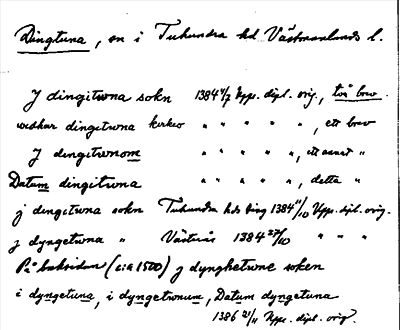 Dingtuna, sn i Tuhundra hd Västmanlands l.
J dingitwna sokn 1384 4/7 Upps. dipl. orig., två brev
widhar dingitwna kirkio " " " " , ett brev
J dingitwnom " " " " , ett annat "
Datum dingitwna " " " " , detta "
j dingitwna sokn Tuhundra hds ting 1384 11/10 Upps. dipl. orig.
j dyngetwna " Västerås 1384 27/10 " " "
På baksidan (c:a 1500) j dynghetwne soken
i dyngetuna, i dyngetwnum, Datum dyngetuna
1386 21/11 Upps. dipl. orig.